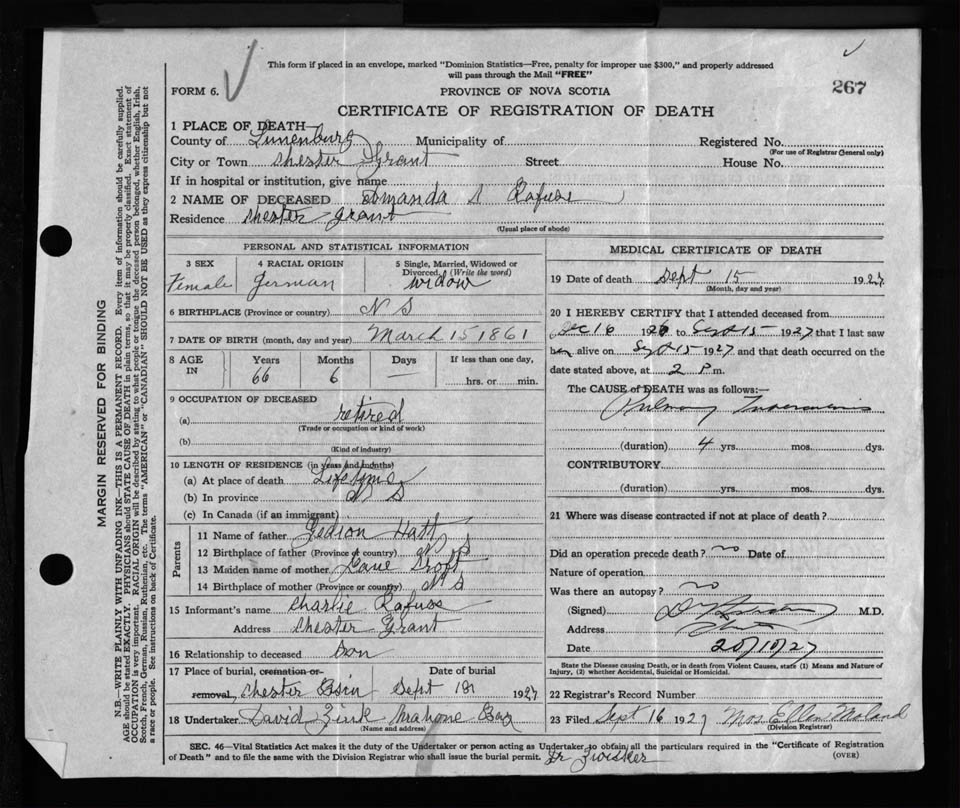 This form if placed in an envelope, marked "Dominion Statistics—Free, penalty for improper use $300," and properly addressed
will pass through the Mail "FREE"
FORM 6.
PROVINCE OF NOVA SCOTIA
267
CERTIFICATE OF REGISTRATION OF DEATH
1 PLACE OF DEATH
County of Lunenburg Municipality of Registered No.
(For use of Registrar General only)
City or Town Chester Grant Street House No.
If in hospital or institution, give name
2 NAME OF DECEASED Amanda S Rafuse
Residence Chester Grant
(Usual place of abode)
PERSONAL AND STATISTICAL INFORMATION
3 SEX 4 RACIAL ORIGIN 5 Single, Married, Widowed or
Divorced, (Write the word)
Female German widow
6 BIRTHPLACE (Province or country) N S
7 DATE OF BIRTH (month, day and year) March 15 1861
8 AGE IN Years Months Days If less than one day,
66 6 — hrs. or min.
9 OCCUPATION OF DECEASED
(a) retired
(Trade or occupation or kind of work)
(b)
(Kind of industry)
10 LENGTH OF RESIDENCE (in years and months)
(a) At place of death Lifetime
(b) In province N S
(c) In Canada (if an immigrant)
Parents
11 Name of father Gedion Hatt
12 Birthplace of father (Province or country) N S
13 Maiden name of mother
14 Birthplace of mother (Province or country) N S
15 Informant's name Charlie Rafuse
Address Chester Grant
16 Relationship to deceased Son
17 Place of burial, cremation or
removal, Chester Bsin Date of burial Sept 18 1927
18 Undertaker David Zink Mahone Bay
(Name and address)
MEDICAL CERTIFICATE OF DEATH
19 Date of death Sept 15 1927
(Month, day and year)
20 I HEREBY CERTIFY that I attended deceased from
Dec 16 1926 to Sept 15 1927 that I last saw
her alive on Sept 15 1927 and that death occurred on the
date stated above, at 2 P.m.
The CAUSE of DEATH was as follows:—
Pulmonary Tuberculosis
(duration) 4 yrs. mos. dys.
CONTRIBUTORY
(duration) yrs. mos. dys.
21 Where was disease contracted if not at place of death?
Did an operation precede death? no Date of
Nature of operation
Was there an autopsy? no
(Signed) M.D.
Address
Date 20/10/27
State the Disease causing Death, or in death from Violent Causes, state (1) Means and Nature of
Injury, (2) whether Accidental, Suicidal or Homicidal.
22 Registrar's Record Number
23 Filed Sept 16 1927 Mrs Ellen
(Division Registrar)
SEC. 46—Vital Statistics Act makes it the duty of the Undertaker or person acting as Undertaker to obtain all the particulars required in the "Certificate of Registration
of Death" and to file the same with the Division Registrar who shall issue the burial permit. Dr Zwicker
(OVER)
MARGIN RESERVED FOR BINDING
N.B.—WRITE PLAINLY, WITH UNFADING INK—THIS IS A PERMANENT RECORD. Every item of information should be carefully supplied.
AGE should be stated EXACTLY. PHYSICIANS should STATE CAUSE OF DEATH in plain terms, so that it may be properly classified. Exact statement of
OCCUPATION is very important. RACIAL ORIGIN will be described by stating to what people or tongue the deceased person belonged, whether English, Irish,
Scotch, French, German, Russian, Ruthenian, etc. The terms "AMERICAN" or "CANADIAN" SHOULD NOT BE USED as they express citizenship but not
a race or people. See instructions on back of Certificate.